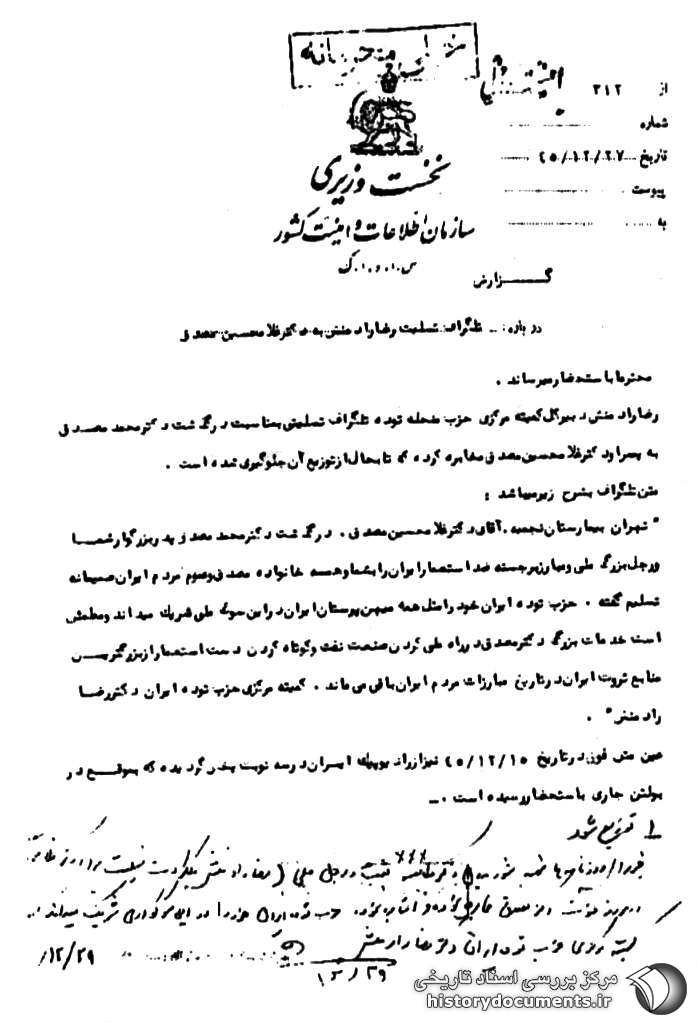 خیلی محرمانه
از ۳۱۲
شماره
تاریخ ۴۵/۱۲/۲۷
پیوست
به
نخست وزیری
سازمان اطلاعات و امنیت کشور
س.ا.و.ا.ک
گزارش
درباره : ـ تلگراف تسلیت رضا رادمنش به دکتر غلامحسین مصدق
محترما باستحضار میرساند .
رضا رادمنش دبیر کل کمیته مرکزی حزب منحله توده تلگراف تسلیتی بمناسبت درگذشت دکتر محمد مصدق
به پسر او دکتر غلامحسین مصدق مخابره کرده که تا بحال از توزیع آن جلوگیری شده است .
متن تلگراف بشرح زیر میباشد :
" تهران بیمارستان نجمیه . آقای دکتر غلامحسین مصدق . درگذشت دکتر محمد مصدق پدر بزرگوار شما
و رجل بزرگ ملی و مبارز برجسته ضد استعمار ایران را بشما و همه خانواده مصدق و عموم مردم ایران صمیمانه
تسلیم گفته . حزب توده ایران خود را مثل همه میهن پرستان ایران در این سوگ ملی شریک میداند و مطمئن
است خدمات بزرگ دکتر مصدق در راه ملی کردن صنعت نفت و کوتاه کردن دست استعمار از بزرگترین
منابع ثروت ایران در تاریخ مبارزات مردم ایران باقی می ماند . کمیته مرکزی حزب توده ایران دکتر رضا
رادمنش " .
عین متن فوق در تاریخ ۴۵/۱۲/۱۵ نیز از رادیو پیک ایران در سه نوبت پخش گردیده که بموقع در
بولتن جاری باستحضار رسیده است . ـ
۱ توزیع شود
کمیته مرکزی حزب توده ایران دکتر رضا رادمنش
۱۲/۲۹
۱۲/۲۹
مرکز بررسی اسناد تاریخی
historydocuments.ir